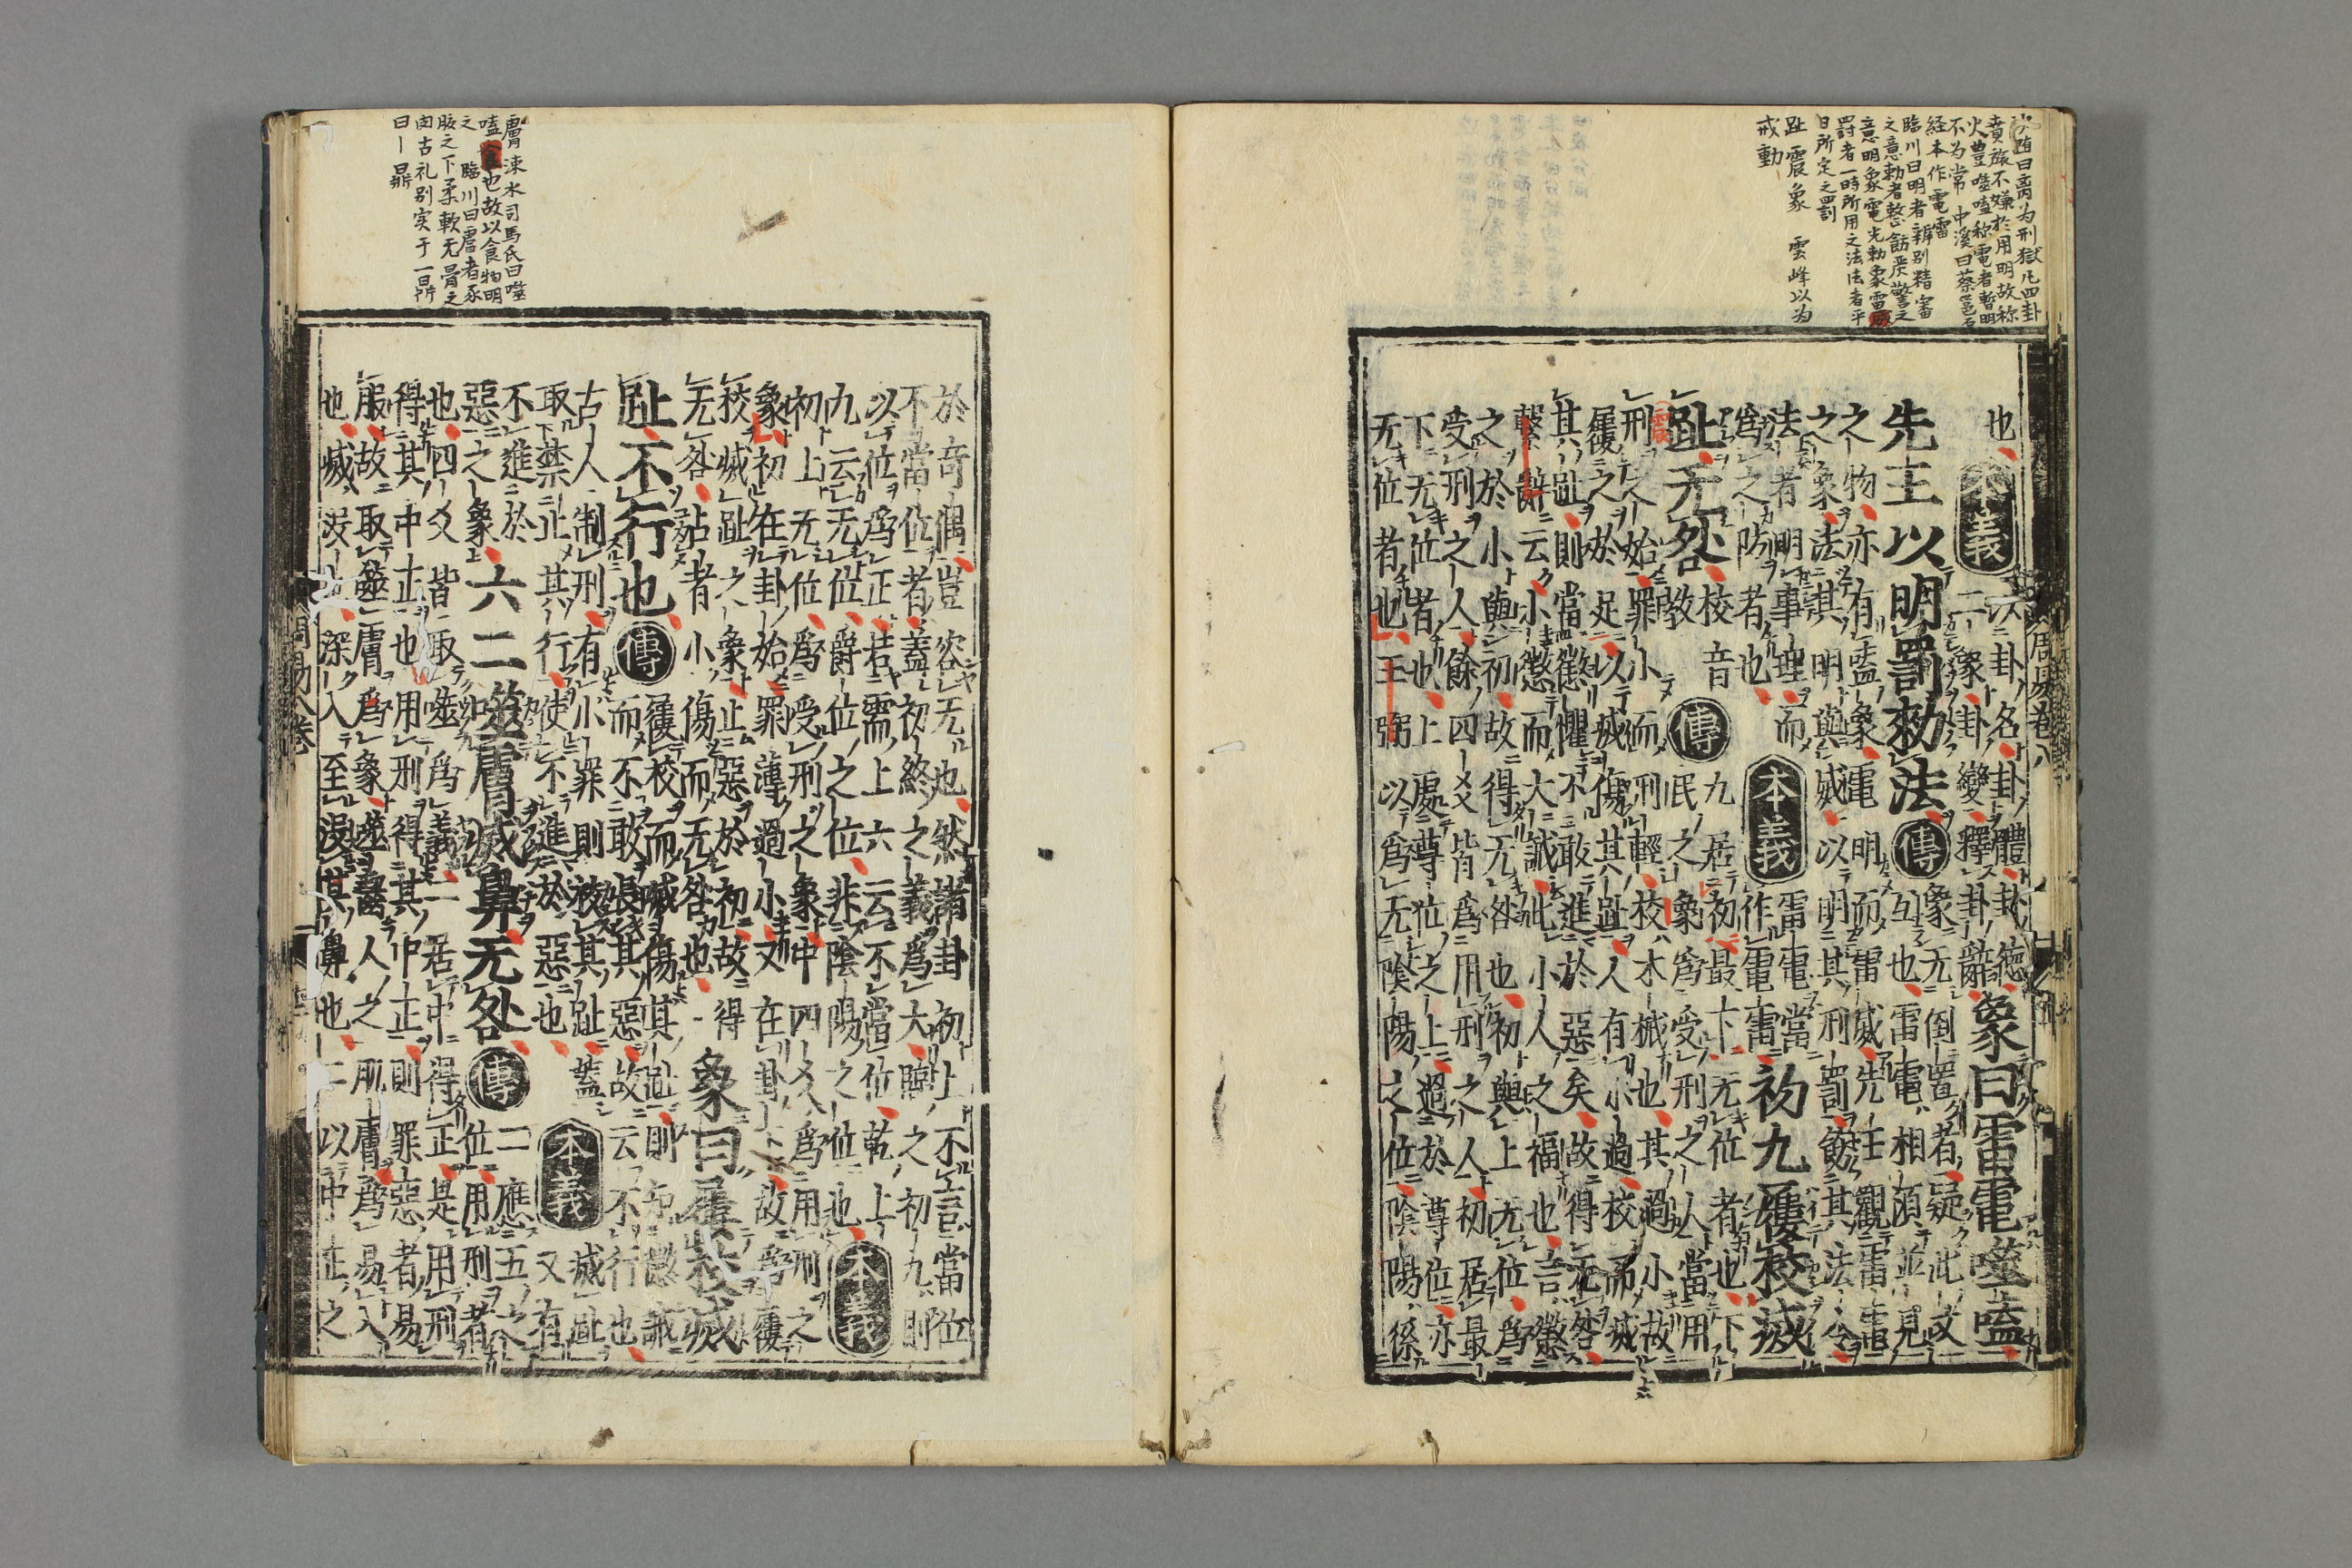 离为刑獄凡四卦
賁旅不嫌於用明故称
火豊噬嗑称電者暫明
不为常 中溪曰蔡邕石
経本作電雷
臨川曰明者辨别精審
之意勅者整飭厳警之
意明象電光勅象雷威
罰者一時所用之法法者平
日所定之罰
趾 震象 雲峰以为
戒動
周易卷八
也 本義 以卦名卦體卦德
二象卦變釋卦辭
象曰雷電噬嗑
先王以明罰勑法 傳 象无倒置者疑此文
互也雷電相須並見
之物亦有嗑象電明而雷威先王觀雷電
之象法其明與威以明其刑罰飭其法令
法者明事理而
為之防者也
本義 雷電當
作電雷
初九屨校滅
趾无咎 校音
教
傳 九居初最下无位者也下
民之象為受刑之人當用
刑之始罪小而刑輕校木械也其過小故
屨之於足以滅傷其趾人有小過校而滅
其趾則當懲懼不敢進於惡矣故得无咎
繫辭云小懲而大誡此小人之福也言懲
之於小與初故得无咎也初與上无位為
受刑之人餘四爻皆為用刑之人初居最
下无位者也上處尊位之上過於尊位亦
无位者也王弼以為无陰陽之位陰陽係
膚 涑水司馬氏曰噬
嗑食也故以食物明
之 臨川曰膚者豕
腹之下柔軟无骨之
肉古礼别実于一鼎
曰ー鼎
於奇偶豈容无也然諸卦初上不言當位
不當位者蓋初終之義為大臨之初九則
以位為正若需上六云不當位乾上
九云无位爵位之位非陰陽之位也 本義
初上无位為受刑之象中四爻為用刑之
象初在卦始罪薄過小又在卦下故為屨
校滅趾之象止惡於初故得
无咎占者小傷而无咎也
象曰屨校滅
趾不行也 傳 屨校而滅傷其趾則知懲誡
而不敢長其惡故云不行也
古人制刑有小罪則校其趾蓋
取禁止其行使不進於惡也
本義 滅趾
又有
不進於
惡之象
六二噬膚滅鼻无咎 傳 二應五之
位用刑者
也四爻皆取噬為義二居中得正是用刑
得其中正也用刑得其中正則罪惡者易
服故取噬膚為象噬齧人之肌膚為易入
也滅沒也深入至沒其鼻也二以中正之
周易八卷